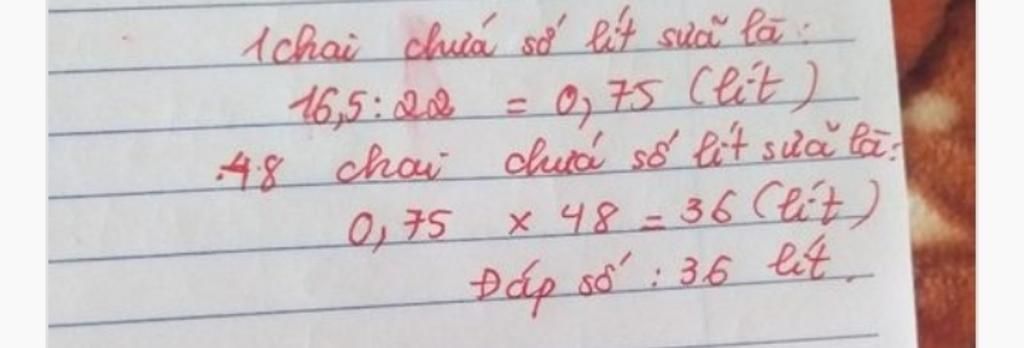 1 chai chứa số lít sữa là:
16,5 : 22 = 0,75 (lít)
48 chai chứa số lít sữa là:
0,75 x 48 = 36 (lít)
Đáp số : 36 lít.